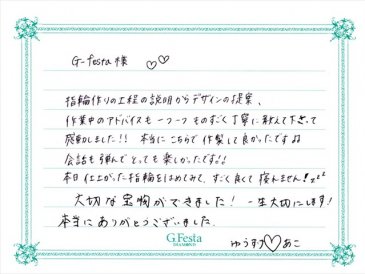 G-festa 様 ♡♡
指輪作りの工程の説明からデザインの提案、
作業中のアドバイスも一つ一つものすごく丁寧に教えて下さって
感動しました!! 本当にこちらで作製して良かったです♫
会話も弾んでとっても楽しかったです!!
本日仕上がった指輪をはめてみて、すごく良くて
大切な宝物ができました! 一生大切にします!
本当にありがとうございました。
G.Festa
DIAMOND
ゆうすけ♡あこ